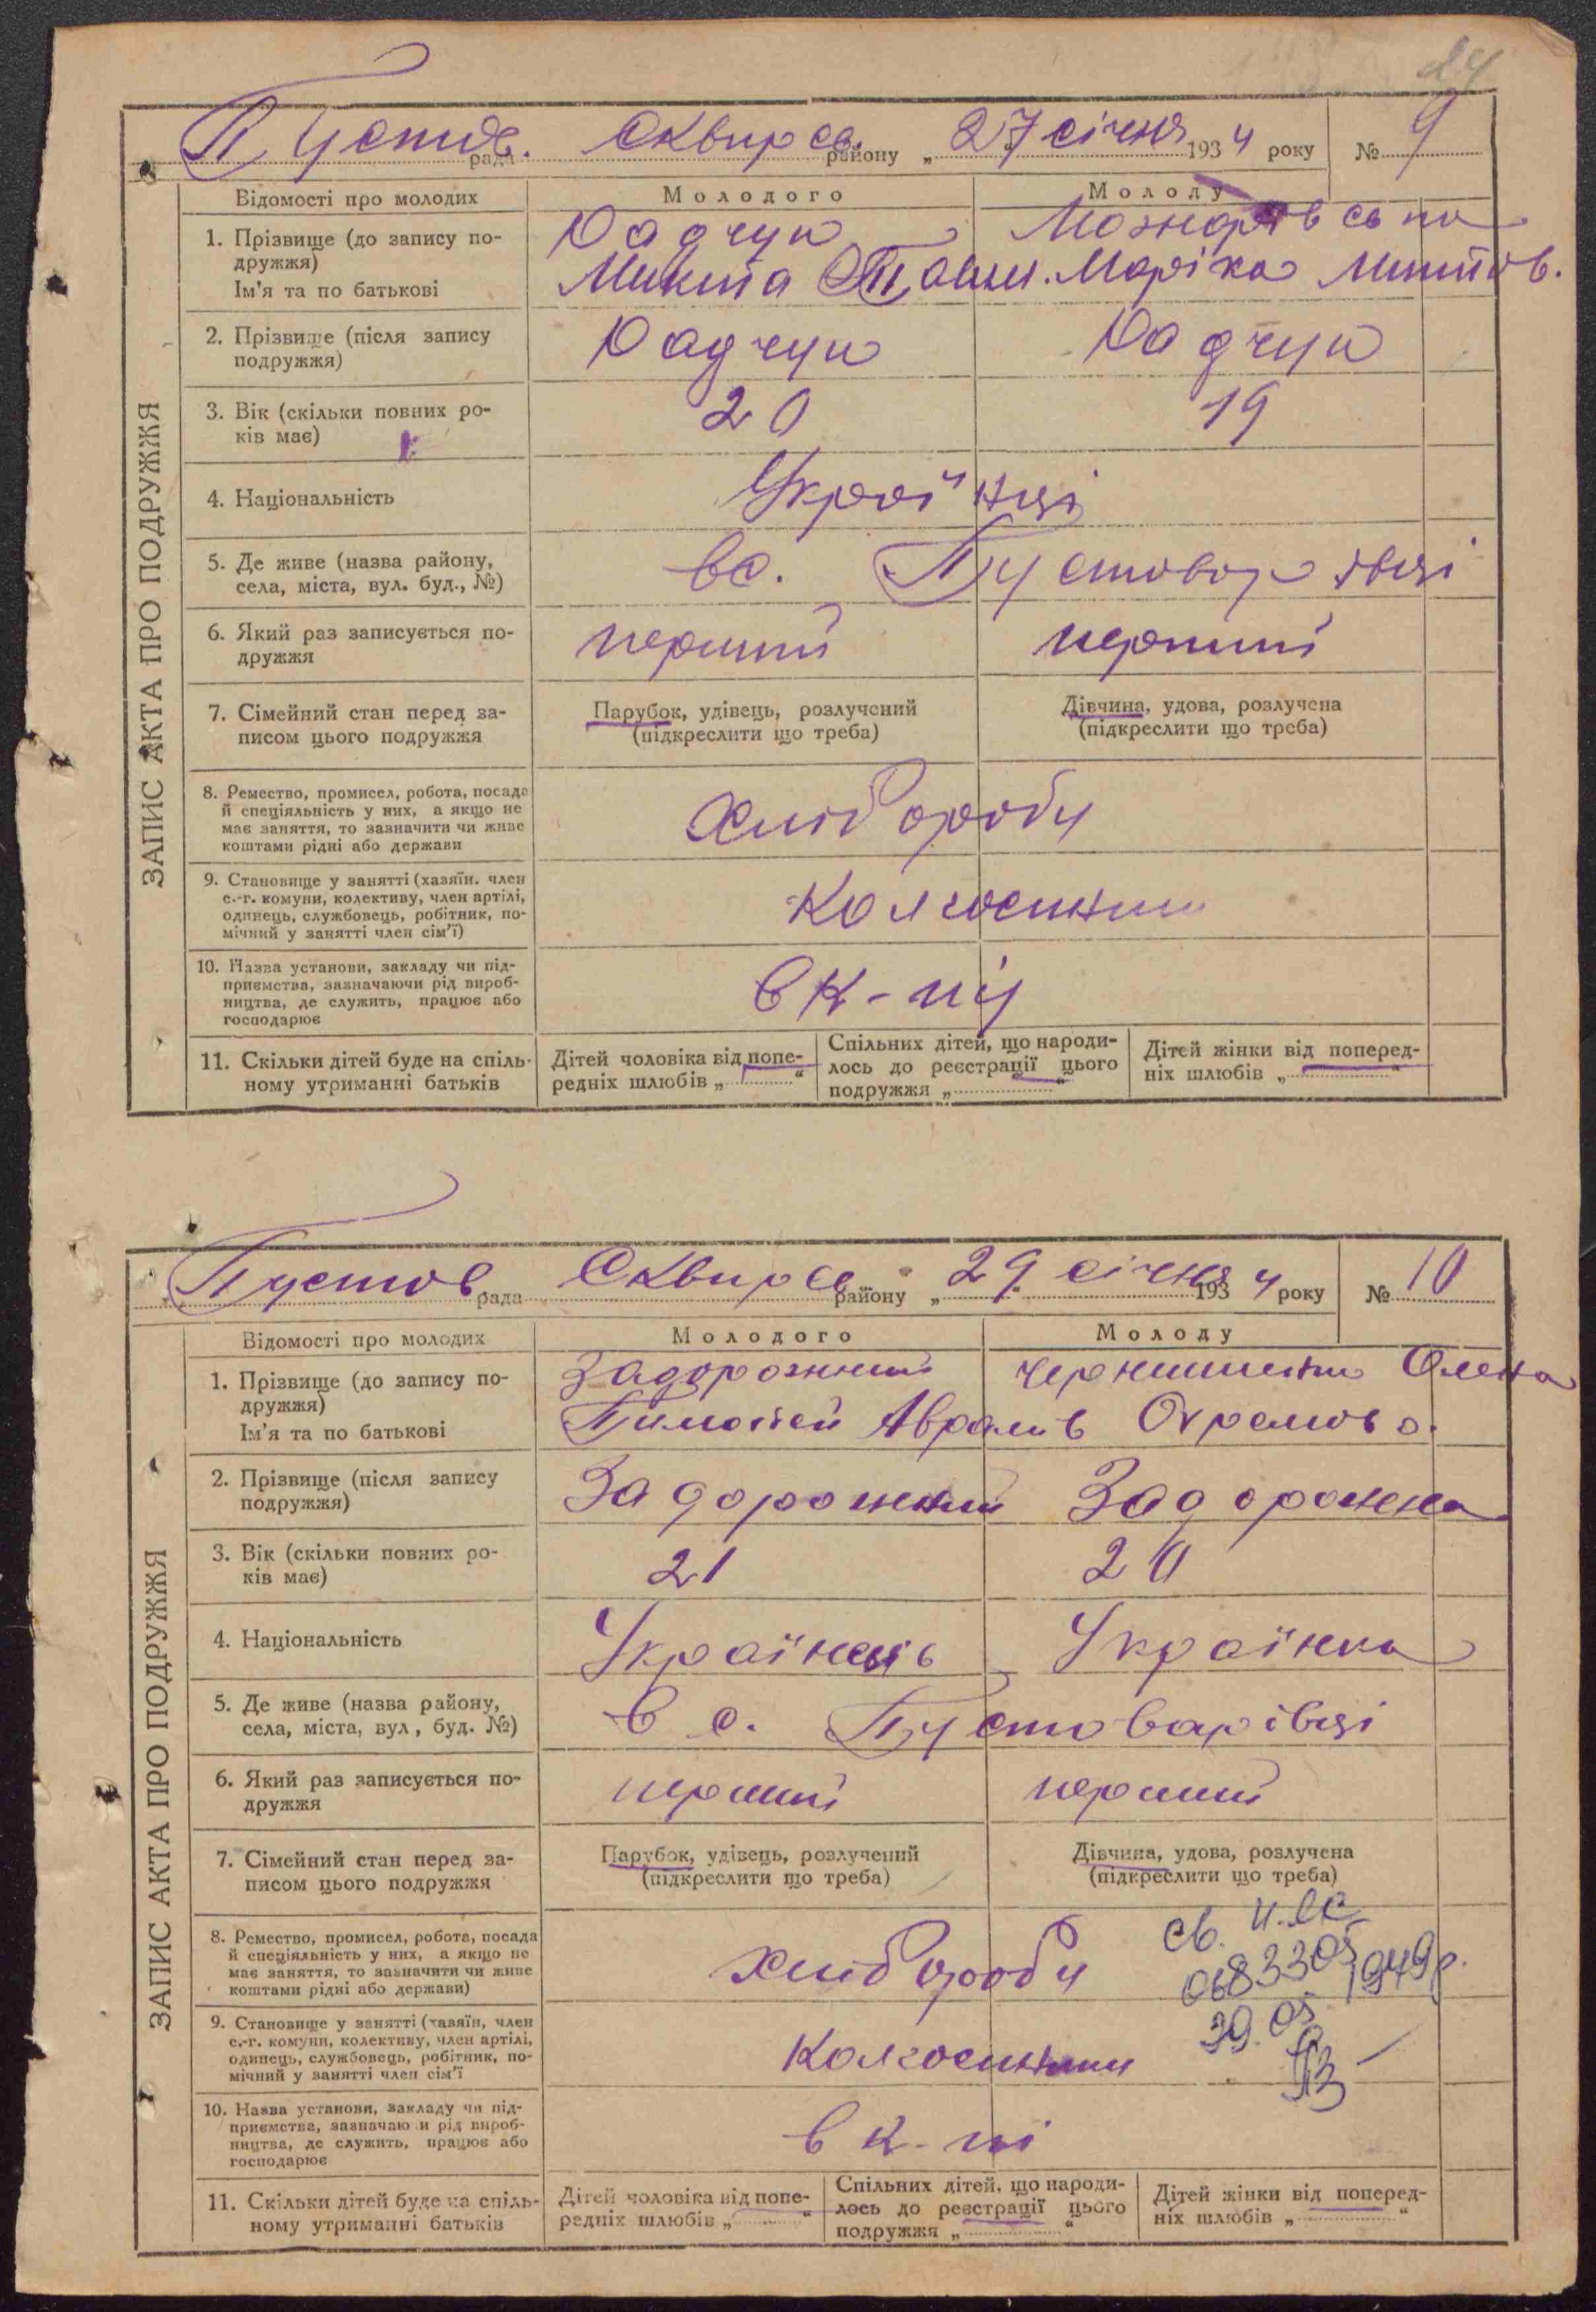 24
Пустов. рада. Сквирсь. району „27 січня 1934 року № 9
ЗАПИС АКТА ПРО ПОДРУЖЖЯ
Відомості про молодих
Молодого
Молоду
1. Прізвище (до запису по-
дружжя)
Ім'я та по батькові
Микита
Марійка
2. Прізвище (після запису
подружжя)
3. Вік (скільки повних ро-
ків має)
20
19
4. Національність
Українці
5. Де живе (назва району,
села, міста, вул. буд., №)
в с. Пустоварівці
6. Який раз записується по-
дружжя
перший
перший
7. Сімейний стан перед за-
писом цього подружжя
Парубок, удівець, розлучений
(підкреслити що треба)
Дівчина, удова, розлучена
(підкреслити що треба)
8. Ремество, промисел, робота, посада
й спеціяльність у них, а якщо не
має заняття, то зазначити чи живе
коштами рідні або держави
хлібороби
9. Становище у занятті (хазяїн. член
с.-г. комуни, колективу, член артілі,
одинець, службовець, робітник, по-
мічний у занятті член сім'ї)
Колгоспники
10. Назва установи, закладу чи під-
приємства, зазначаючи рід вироб-
ництва, де служить, працює або
господарює
в к-пі
11. Скільки дітей буде на спіль-
ному утриманні батьків
Дітей чоловіка від попе-
редніх шлюбів „ “
Спільних дітей, що народи-
лось до реєстрації цього
подружжя „ “
Дітей жінки від поперед-
ніх шлюбів „ “
Пустов. рада Сквирсь. району „29“ січня 1934 року № 10
ЗАПИС АКТА ПРО ПОДРУЖЖЯ
Відомості про молодих
Молодого
Молоду
1. Прізвище (до запису по-
дружжя)
Ім'я та по батькові
Задорожний
Тимофей Аврамів
Олена
Охремова.
2. Прізвище (після запису
подружжя)
Задорожний
Задорожна
3. Вік (скільки повних ро-
ків має)
21
20
4. Національність
Українець
Українка
5. Де живе (назва району,
села, міста, вул, буд. №)
в с. Пустоварівці
6. Який раз записується по-
дружжя
перший
перший
7. Сімейний стан перед за-
писом цього подружжя
Парубок, удівець, розлучений
(підкреслити що треба)
Дівчина, удова, розлучена
(підкреслити що треба)
8. Ремество, промисел, робота, посада
й спеціяльність у них, а якщо не
має заняття, то зазначити чи живе
коштами рідні або держави)
хлібороби
9. Становище у занятті (хазяїн, член
с.-г. комуни, колективу, член артілі,
одинець, службовець, робітник, по-
мічний у занятті член сім'ї
Колгоспники
10. Назва установи, закладу чи під-
приємства, зазначаючи рід вироб-
ництва, де служить, працює або
господарює
в к-пі
11. Скільки дітей буде на спіль-
ному утриманні батьків
Дітей чоловіка від попе-
редніх шлюбів „ “
Спільних дітей, що народи-
лось до реєстрації цього
подружжя „ “
Дітей жінки від поперед-
ніх шлюбів „ “